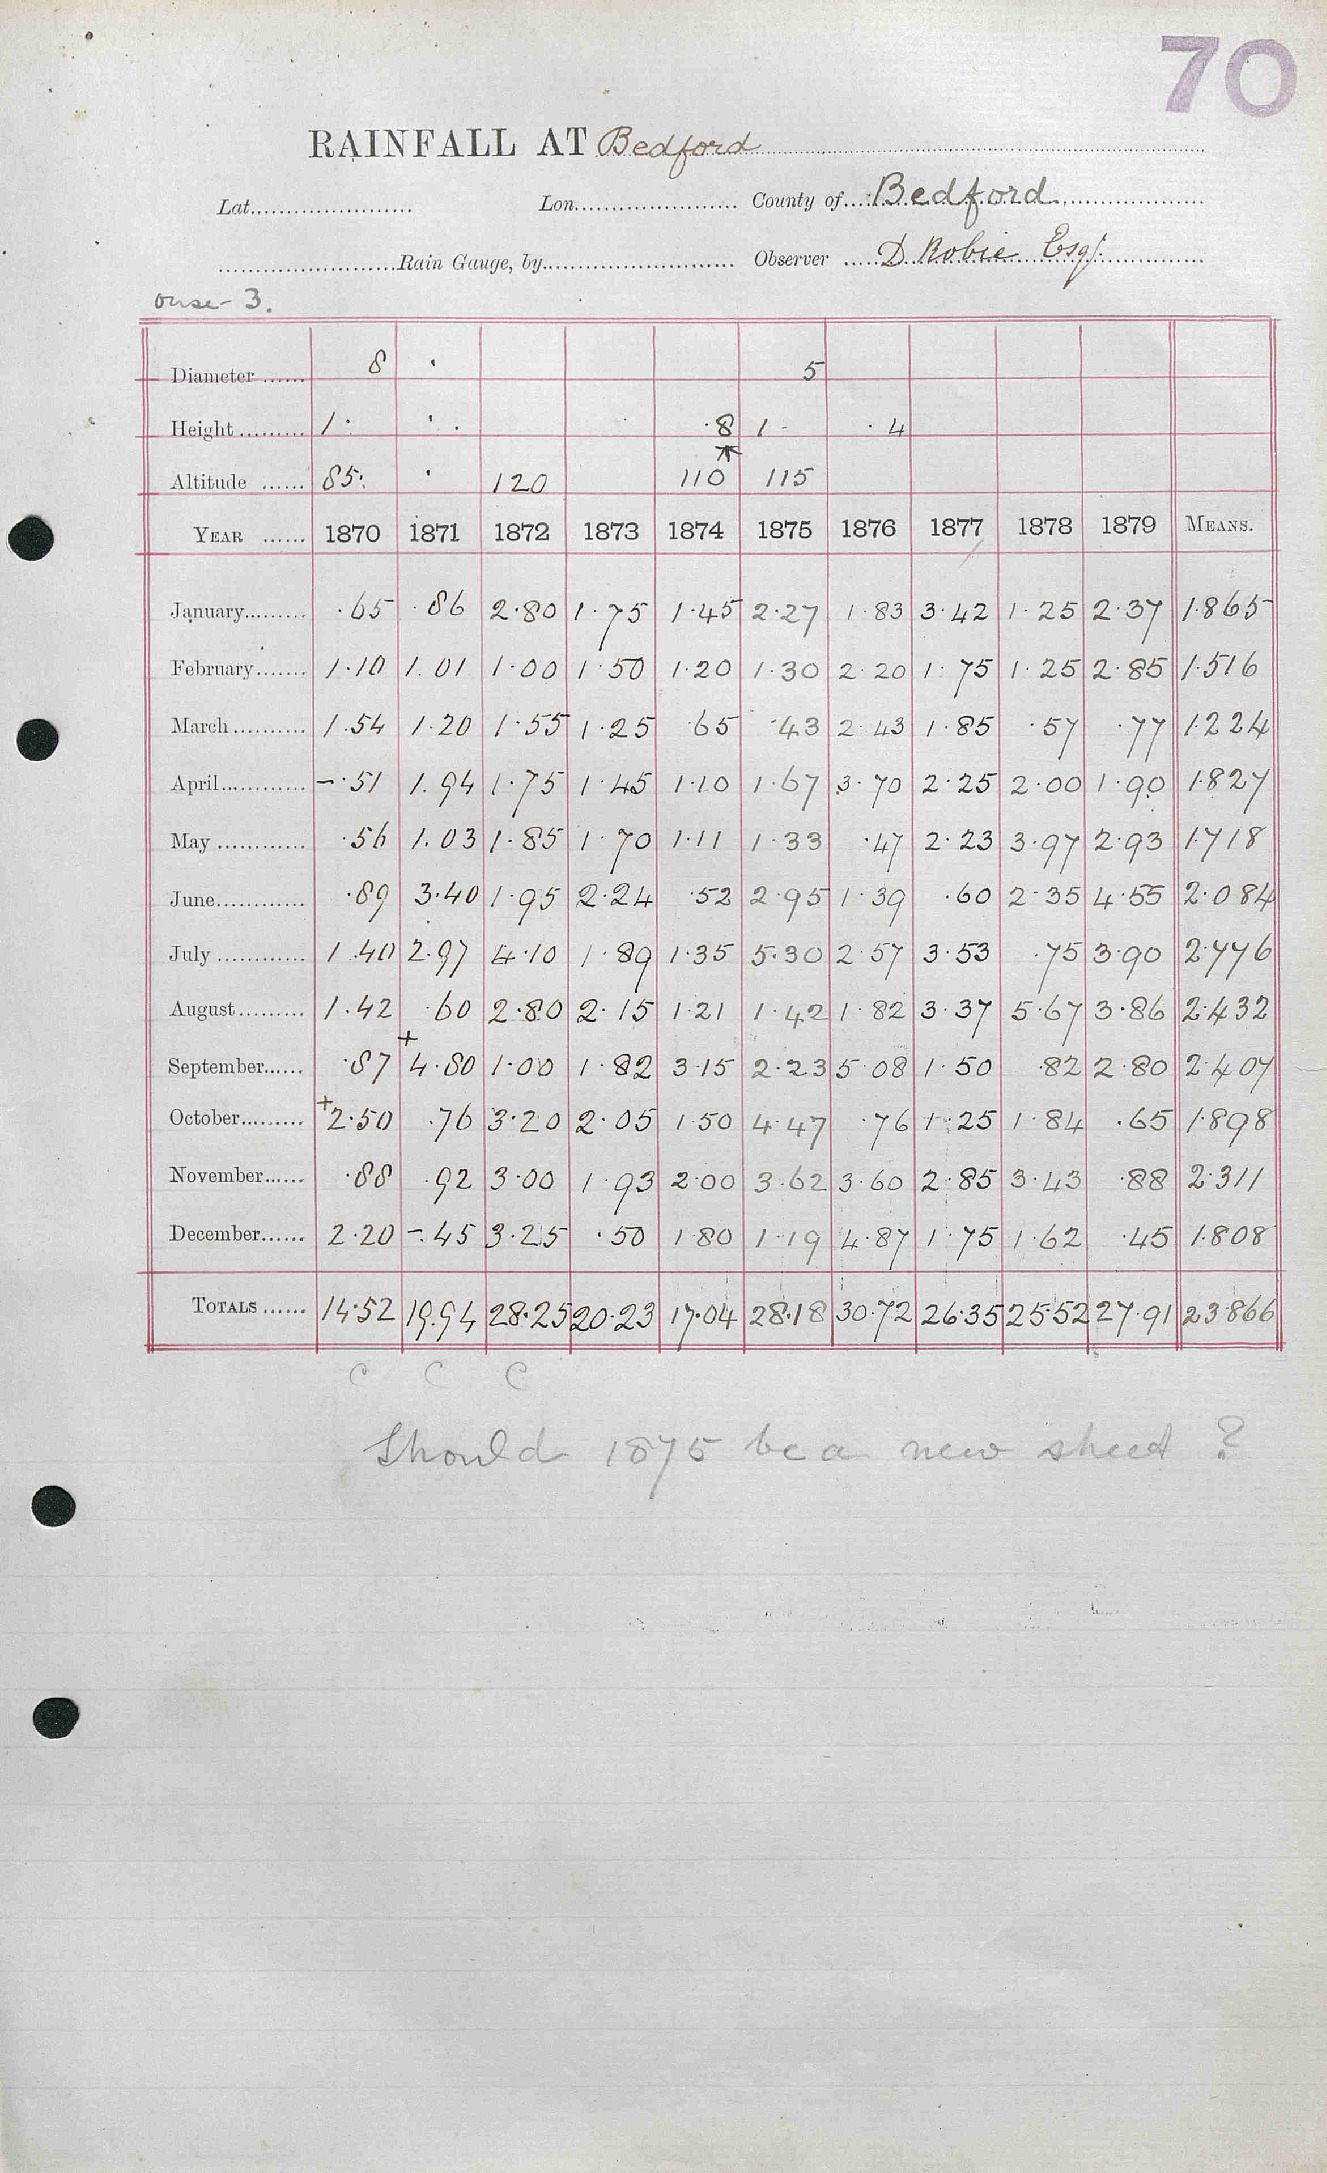 70
RAINFALL AT Bedford
Lat. Lon. County of Bedford
Rain Gauge, by Observer D. Robie Esqr.
ouse 3.
Diameter 8 ' 5
Height 1· ' . ·8 1 - · 4
Altitude 85· ' 120 110 115
YEAR 1870 1871 1872 1873 1874 1875 1876 1877 1878 1879 MEANS.
January ·65 ·86 2·80 1·75 1·45 2·27 1·83 3·42 1·25 2·37 1·865
February 1·10 1·01 1·00 1·50 1·20 1·30 2·20 1·75 1·25 2·85 1·516
March 1·54 1·20 1·55 1·25 ·65 ·43 2·43 1·85 ·57 ·77 1·224
April -·51 1·94 1·75 1·45 1·10 1·67 3·70 2·25 2·00 1·90 1·827
May ·56 1·03 1·85 1·70 1·11 1·33 ·47 2·23 3·97 2·93 1·718
June ·89 3·40 1·95 2·24 ·52 2·95 1·39 ·60 2·35 4·55 2·084
July 1·40 2·97 4·10 1·89 1·35 5·30 2·57 3·53 ·75 3·90 2·776
August 1·42 ·60 2·80 2·15 1·21 1·42 1·82 3·37 5·67 3·86 2·432
September ·87 +4·80 1·00 1·82 3·15 2·23 5·08 1·50 ·82 2·80 2·407
October +2·50 ·76 3·20 2·05 1·50 4·47 ·76 1·25 1·84 ·65 1·898
November ·88 ·92 3·00 1·93 2·00 3·62 3·60 2·85 3·43 ·88 2·311
December 2·20 -·45 3·25 ·50 1·80 1·19 4·87 1·75 1·62 ·45 1·808
TOTALS 14·52 19·94 28·25 20·23 17·04 28·18 30·72 26·35 25·52 27·91 23·866
C C C
Should 1875 be a new sheet ?